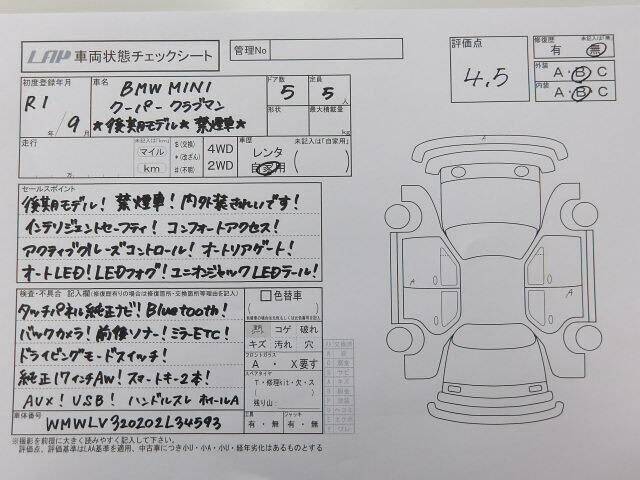 LAP 車両状態チェックシート
管理No
評価点
4.5
修復歴 未記入は「無」
有・無
外装 A・B・C
内装 A・B・C
初度登録年月
R1
/9月
車名
BMW MINI
クーパー クラブマン
★後期モデル★禁煙車★
ドア数
5
定員
5人
形状
最大積載量
kg
走行 未記入は「km」
マイル
km
万
$(交換)
*(改ざん)
#(不明)
4WD
2WD
車歴 未記入は「自家用」
レンタ
自家用
セールスポイント
後期モデル!禁煙車!内外装きれいです!
インテリジェントセーフティ!コンフォートアクセス!
アクティブクルーズコントロール!オートリアゲート!
オートLED!LEDフォグ!ユニオンジャックLEDテール!
検査・不具合 記入欄(修復歴有りの場合は修復箇所・交換箇所等理由を記入)
タッチパネル純正ナビ!Bluetooth!
バックカメラ!前後ソナー!ミラーETC!
ドライビングモードスイッチ!
純正17インチAW!スマートキー2本!
AUX!USB!ハンドルスレ ホイールA
色替車
コゲ 破れ
キズ 汚れ 穴
フロントガラス
A・X要す
スペアタイヤ
T・修理kit・欠・ス
残り山:
工具
有・無
ジャッキ
有・無
車体番号
WMWLV320202L34593
A
A
A
※撮影を前提に大きく読みやすく記入して下さい。
評価点、評価基準はLAA基準を適用、中古車につき小U・小A・小U・経年劣化はあるものとする